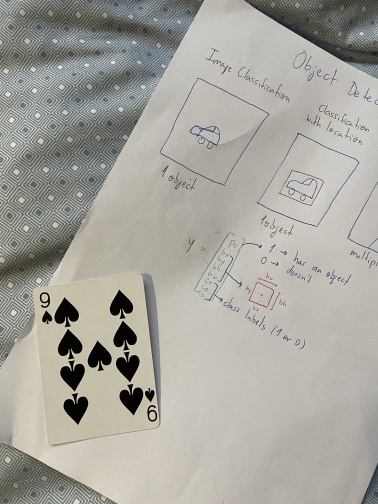 Object Detec
Image Classification
Classification
with location
1 object
1 object
multip
y =
Pc
bx
by
bh
bw
1 → has an object
0 → doesn't
bw
bh
class labels (1 or 0)
9
9